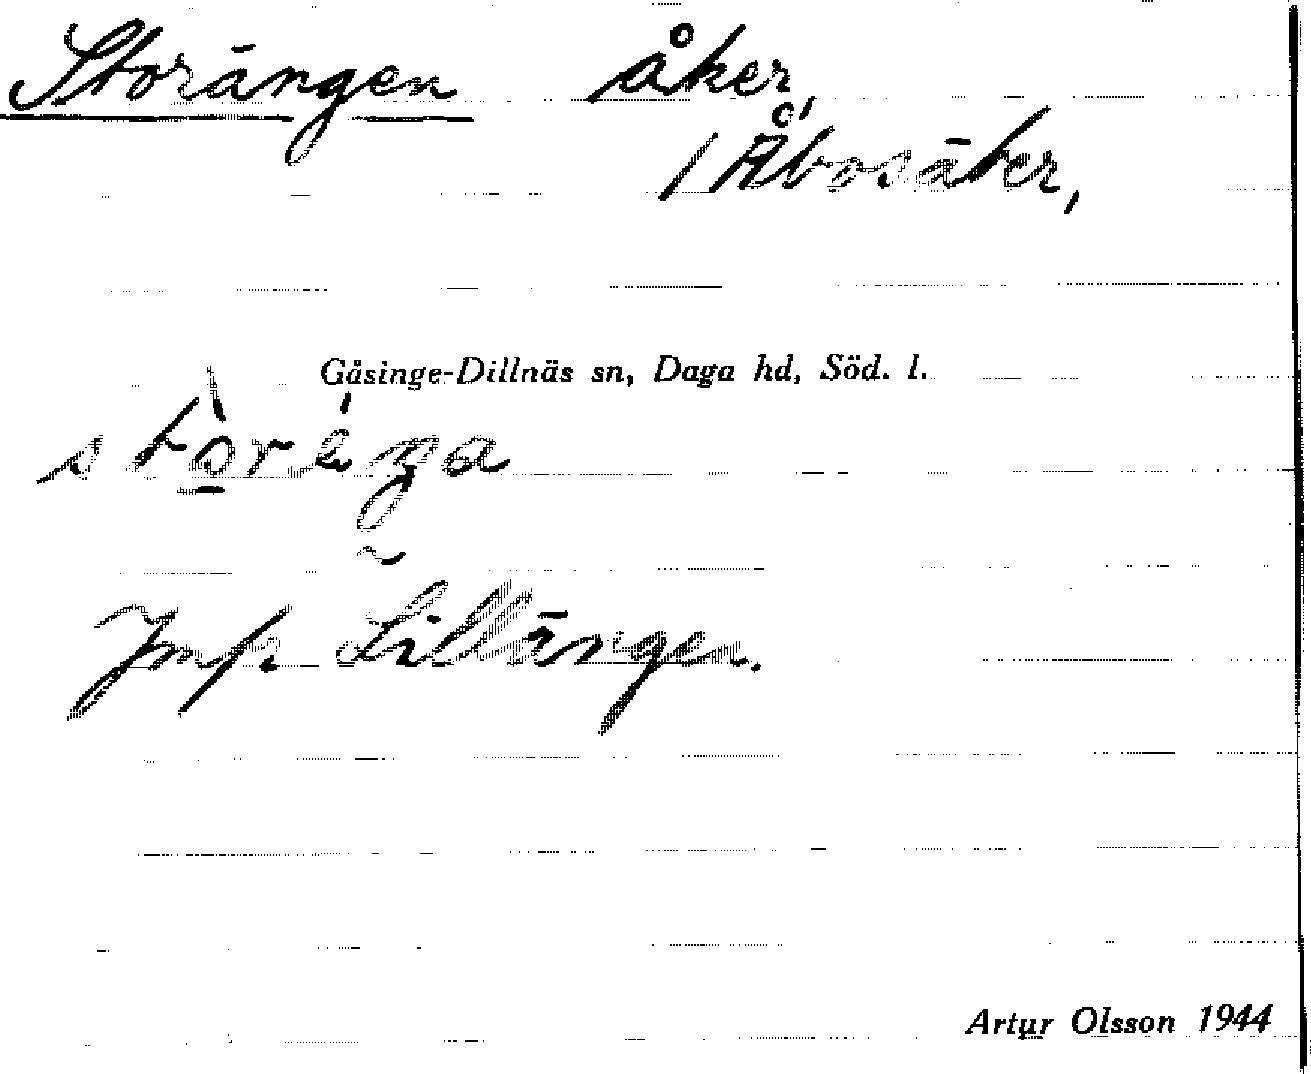 Storängen åker,
/ Åbosäter,
Gåsinge-Dillnäs sn, Daga hd, Söd. l.
Jmfr Lillängen.
Artur Olsson 1944